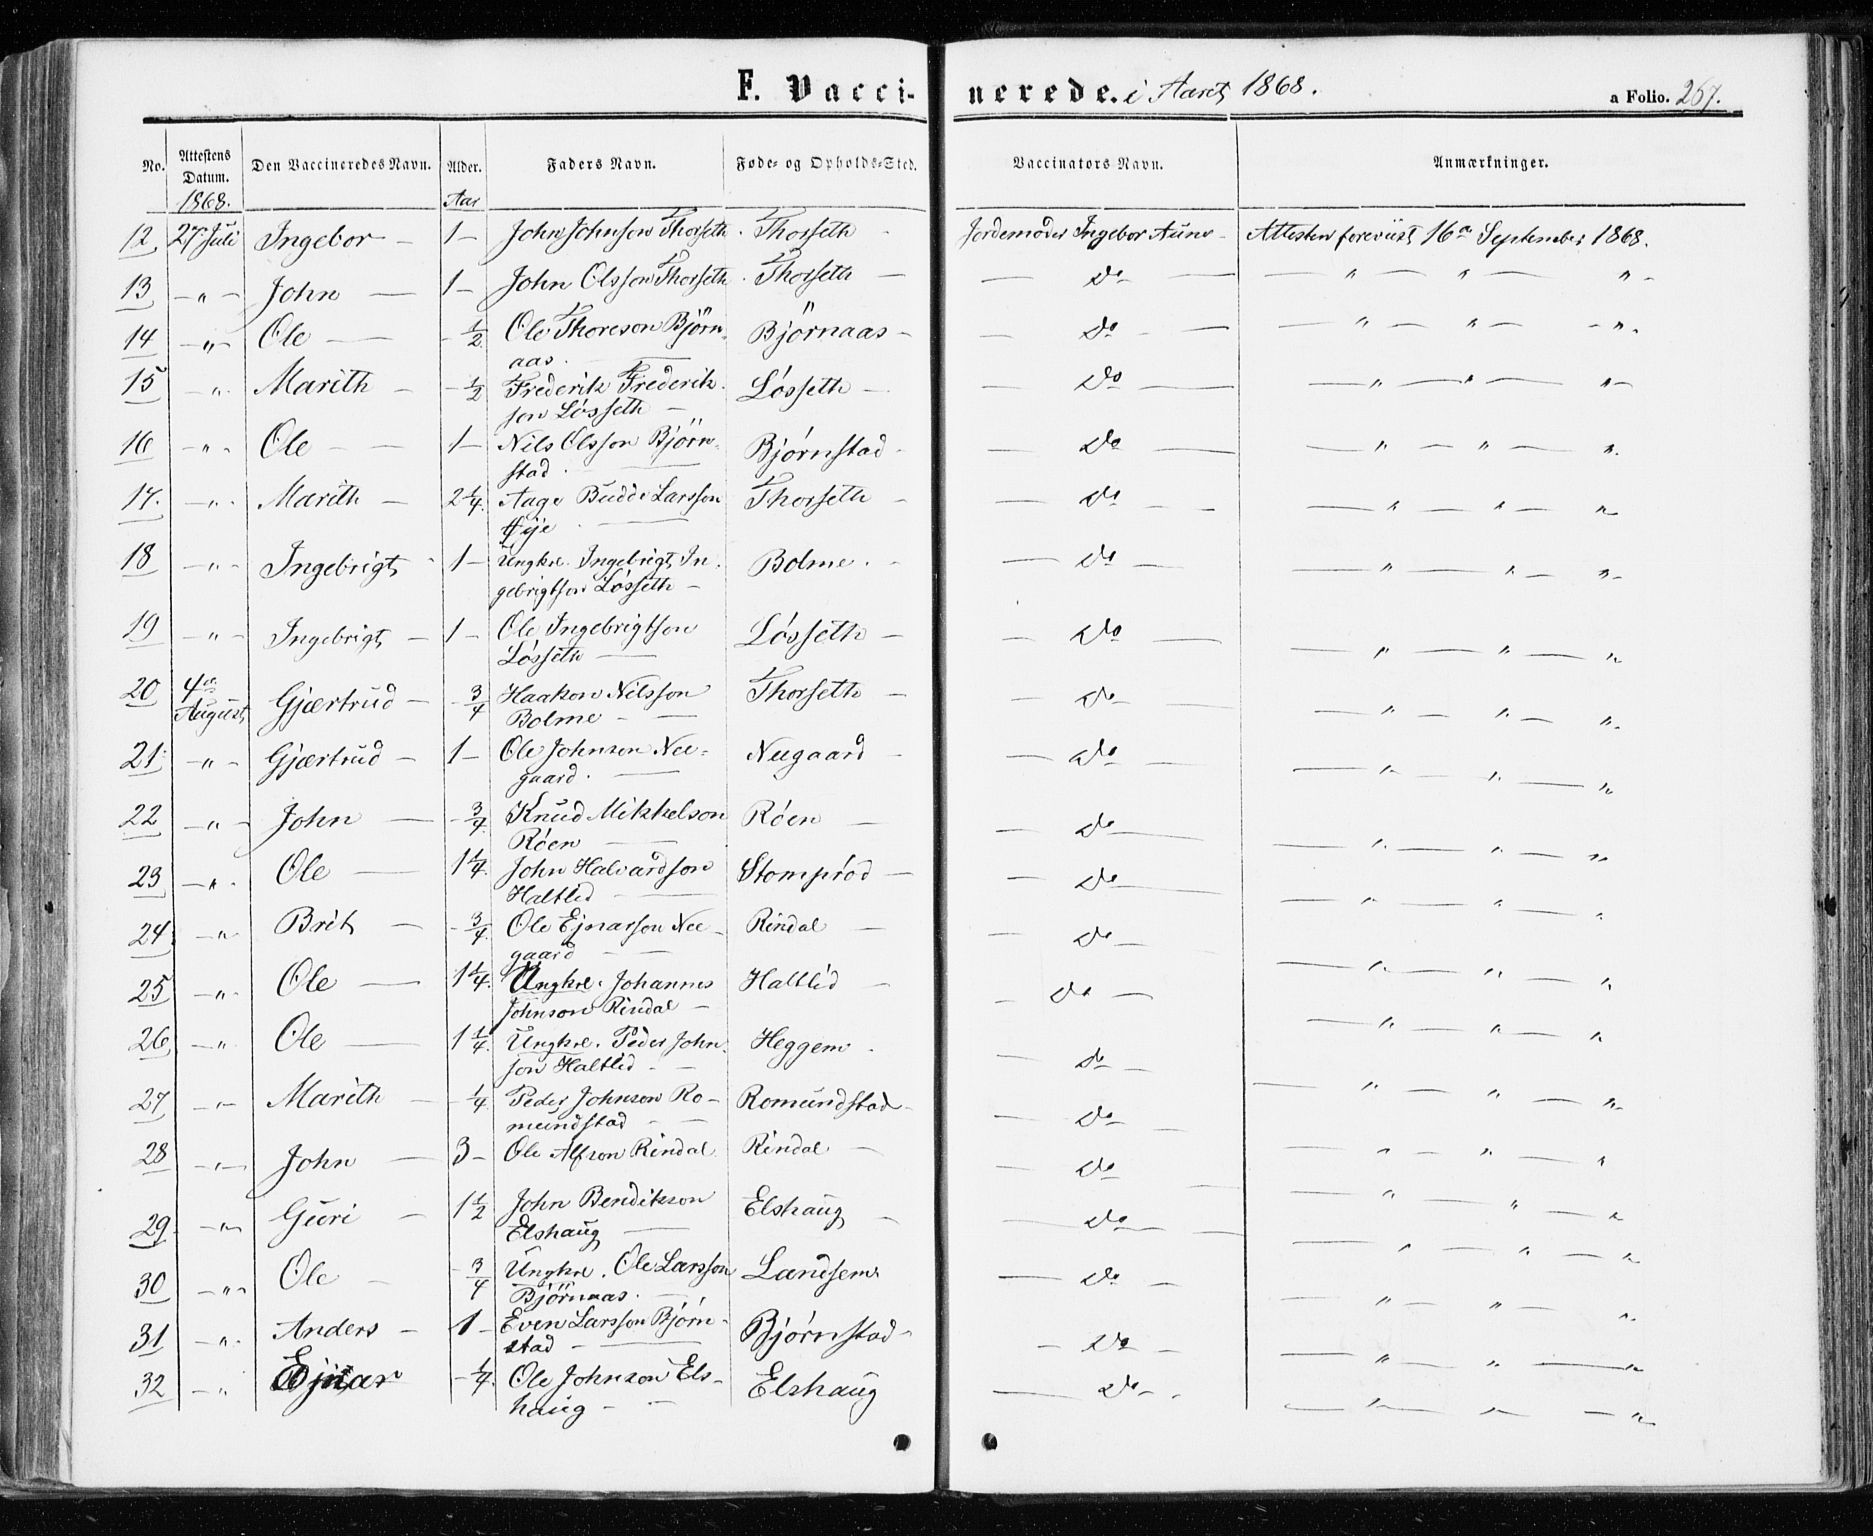 F. Vaccinerede. i Aaret 1868. a Folio. 267.
No. Attestens Datum. Den Vaccineredes Navn. Alder. Faders Navn. Føde- og Opholds-Sted. Vaccinators Navn. Anmærkninger.
1868. Aar
12 27 Juli Ingebor - 1 - John Johnson Thorseth. Thorseth - Jordemoder Ingebor Aune - Attesten foreviist 16de September 1868.
13 - " - John - 1 - John Olsson Thorseth. Thorseth - - Do - - " - " - " -
14 - " - Ole - - 1/2 Ole Thoreson Björn-
aas. - Björnaas - - Do - - " - " - " -
15 - " - Marith - - 1/2 Frederik Frederik-
son Løsseth - Løsseth - - Do - " - " - " -
16 - " - Ole - 1 - Nils Olsson Björn-
stad. - Bjørnstad - - Do - - " - " - "
17. - " - Marith - 2 1/4 Aage Budde Larsson
Øye - Thorseth - - Do - - - " - " - " -
18 - " - Ingebrigt - 1 - Ungkrl. Ingebrigt In-
gebrigtson Løsseth - Bolme. - - Do - - " - " - " -
19 - " - Ingebrigt - 1 - Ole Ingebrigtson
Løsseth - Løsseth - - Do - - " - " - "
20 4de
August Gjærtrud - - 3/4 Haakon Nilsson
Bolme - - Thorseth - - Do - - " - " - "
21 - " - Gjærtrud - 1 - Ole Johnson Nee-
gaard. - Neegaard - - Do - - " - " - "
22 - " - John - - 3/4 Knud Mikkelson
Røen - Røen - - Do - - " - " - "
23 - " - Ole - 1 1/4 John Halvardson
Haltlid - Stomprød - - Do - - " - " - "
24 - " - Brit - - 3/4 Ole Ejnarson Nee-
gaard - Rindal - - Do - - " - " - "
25 - " - Ole - 1 1/4 Ungkrl. Johannes
Johnson Rindal - Haltlid - - Do - - " - " - "
26 - " - Ole - 1 1/4 Ungkrl. Peder John-
son Haltlid - - Heggem - - Do - - " - " - "
27 - " - Marith - - 1/4 Peder Johnson Ro-
mundstad - - Romundstad - - Do - - " - " - "
28 - " - John - 3 - Ole Alfson Rindal Rindal - - Do - - " - " - "
29 - " - Guri - 1 1/2 John Bendikson
Elshaug - Elshaug - - Do - - " - " - "
30 - " - Ole - - 3/4 Ungkrl. Ole Larsson
Björnaas. - Landsem - Do - - " - " - "
31 - " - Anders - 1 - Even Larsson Bjørn-
stad - - Bjørnstad - - Do - - " - " - "
32 - " Ejnar - 1/4 Ole Johnson Els-
haug - - Elshaug - Do - - - " - " - "